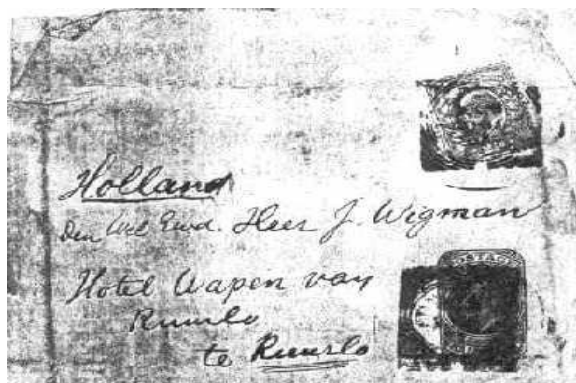 Holland
Den Wel Eerd. Heer J. Wigman
Hotel Wapen van
Ruurlo
te Ruurlo
POSTAGE